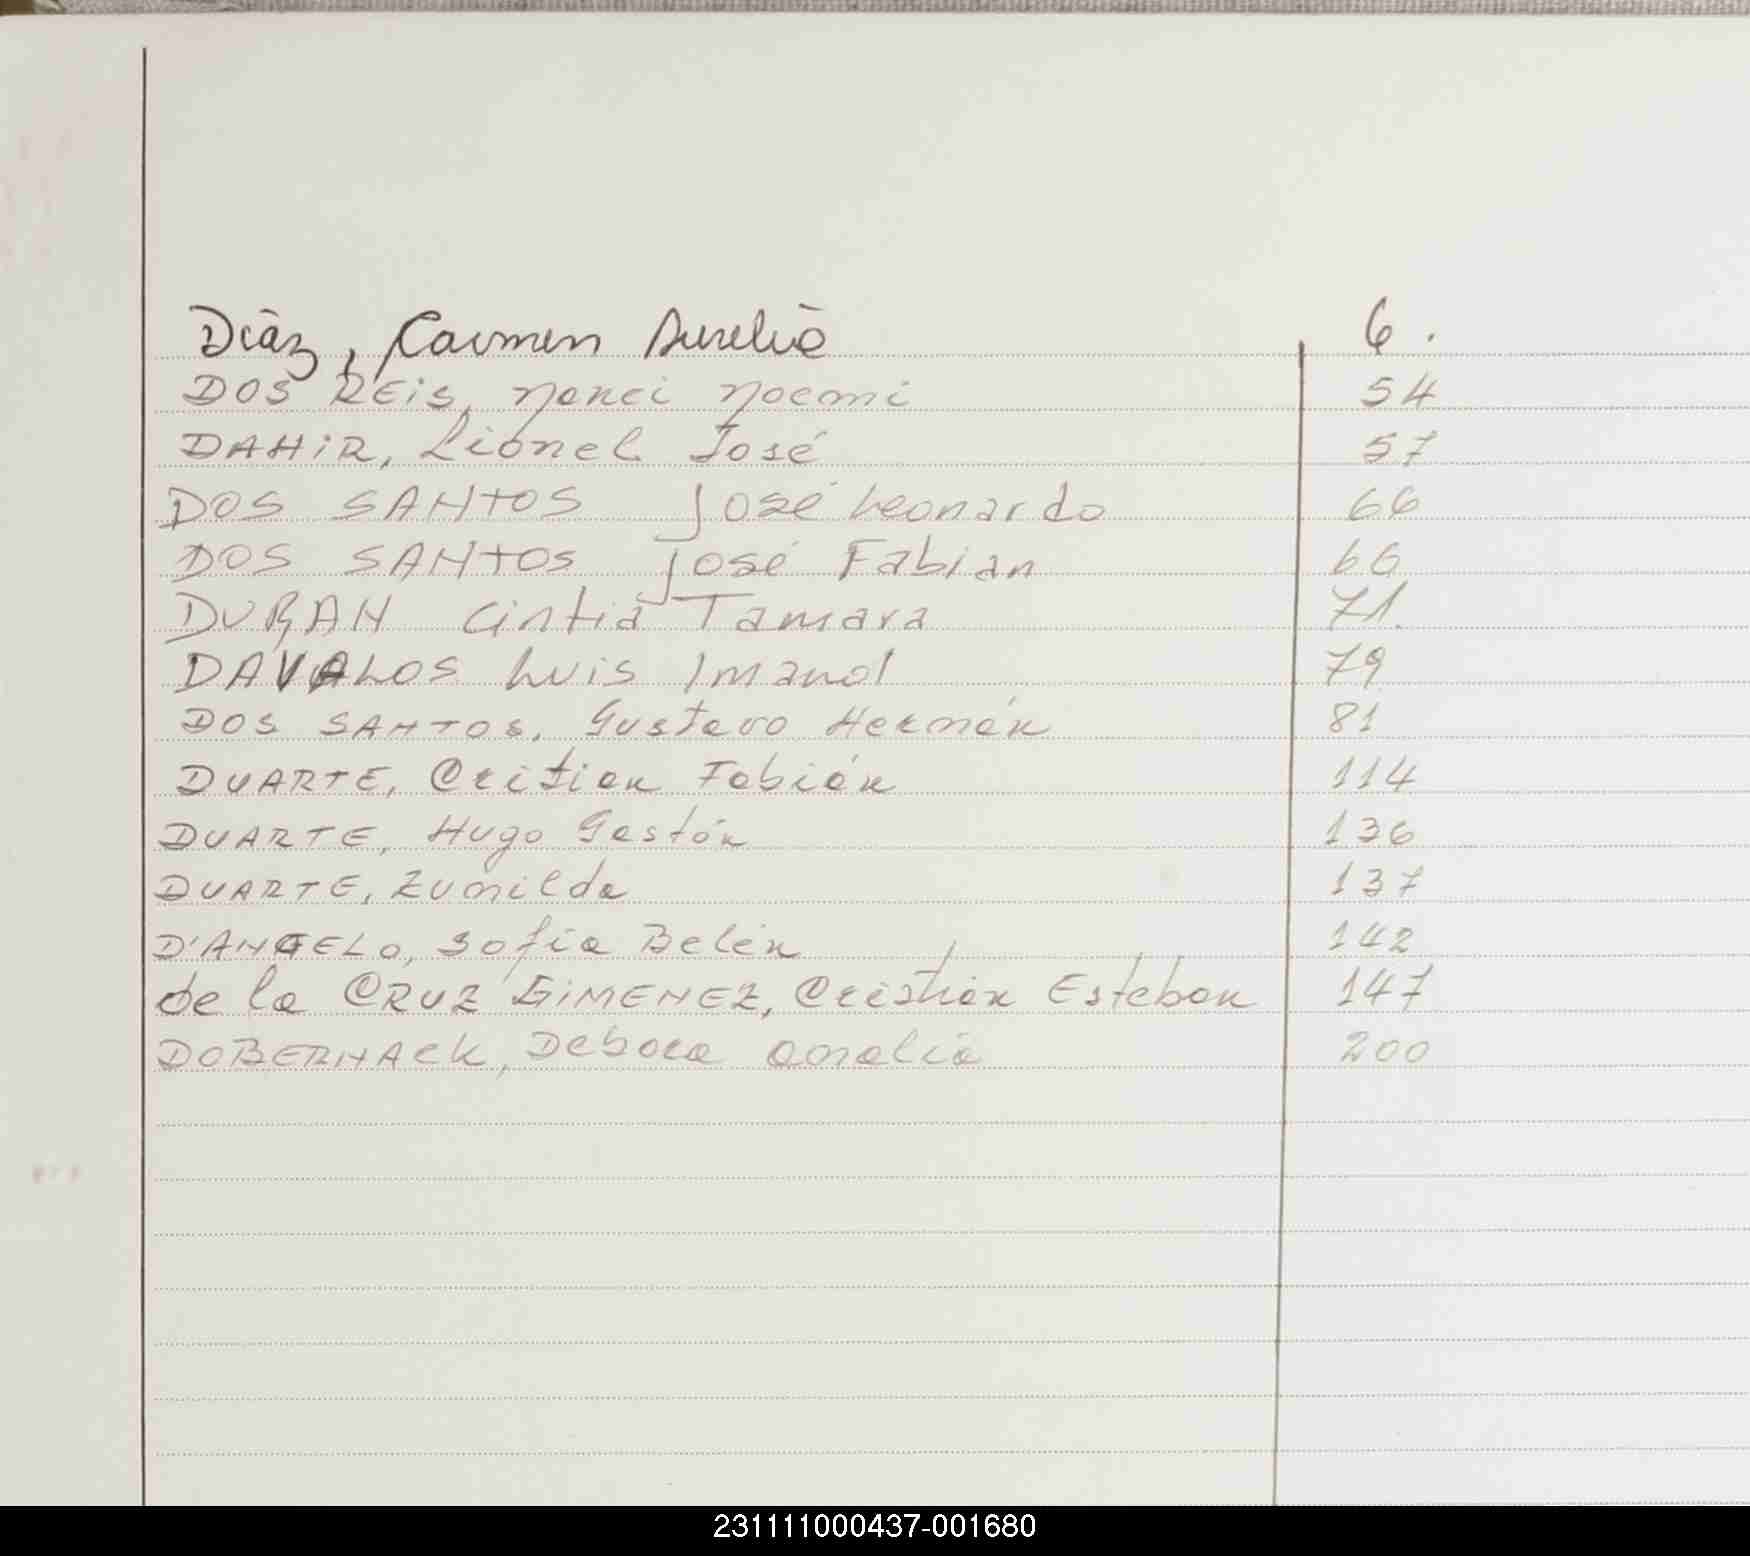 Diaz, Carmen Aurelia 6.
DOS REiS, Nanci Noemi 54
DAHiR, Lionel José 57
DOS SANTOS José Leonardo 66
DOS SANTOS José Fabian 66
DURAN Cintia Tamara 71.
DAVALOS Luis Imanol 79
DOS SANTOS, Gustavo Hernán 81
DUARTE, Critian Fabián 114
DUARTE, Hugo Gastón 136
DUARTE, Zunilda 137
D'ANGELO, Sofia Belén 142
de la CRUZ GiMENEZ, Cristián Esteban 147
DOBERNACK, Debora Analia 200
231111000437-001680